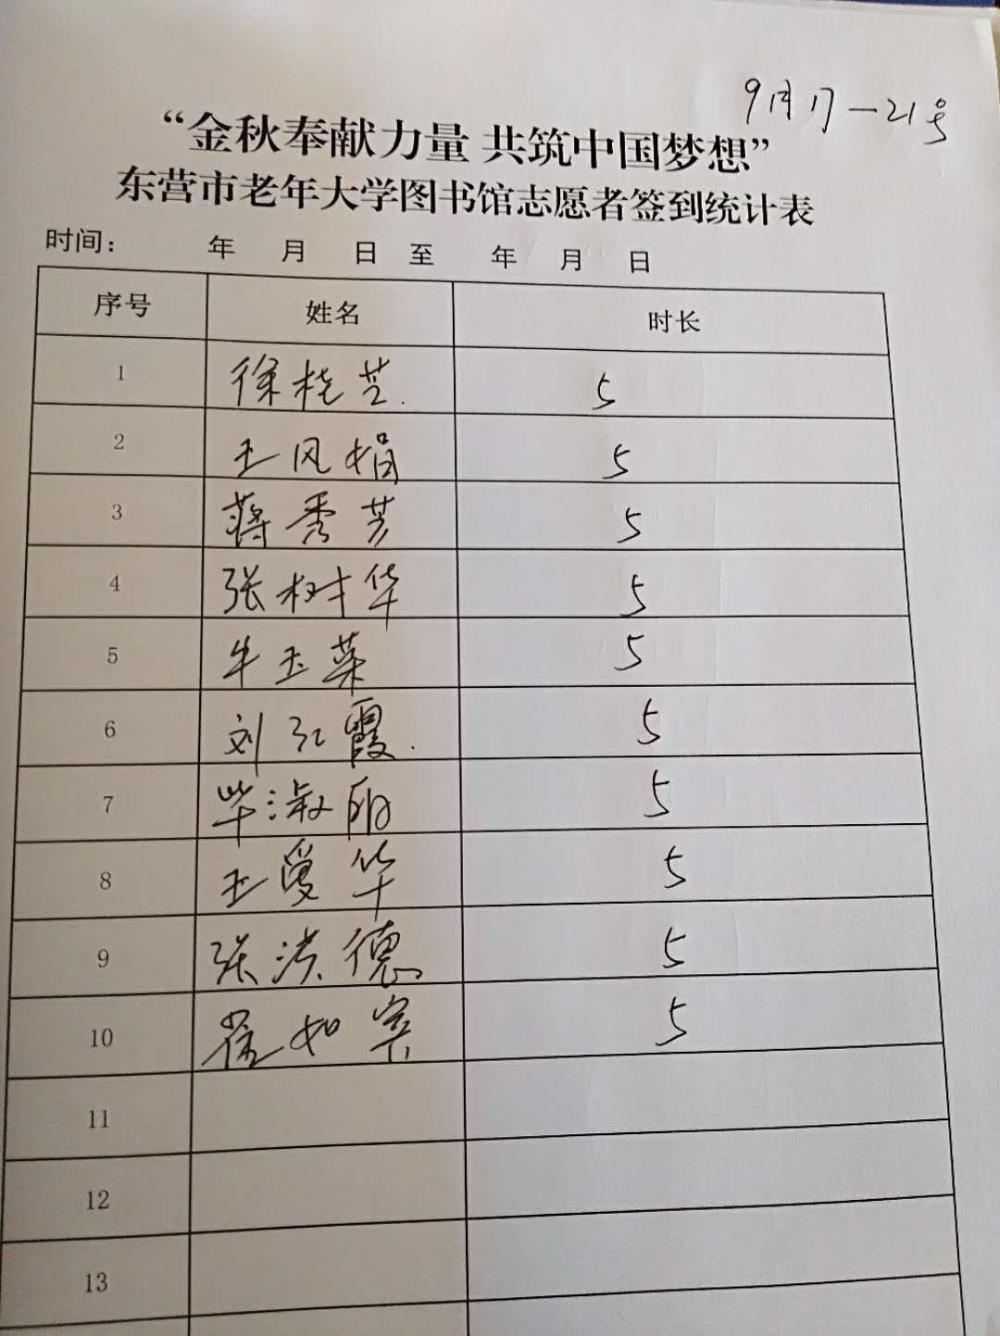 9月17-21号
“金秋奉献力量 共筑中国梦想”
东营市老年大学图书馆志愿者签到统计表
时间： 年 月 日 至 年 月 日
序号 姓名 时长
1 徐桂芝 5
2 王风娟 5
3 蒋秀芳 5
4 张树华 5
5 牛玉菜 5
6 刘红霞 5
7 毕淑丽 5
8 王爱华 5
9 张洪德 5
10 如 5
11
12
13